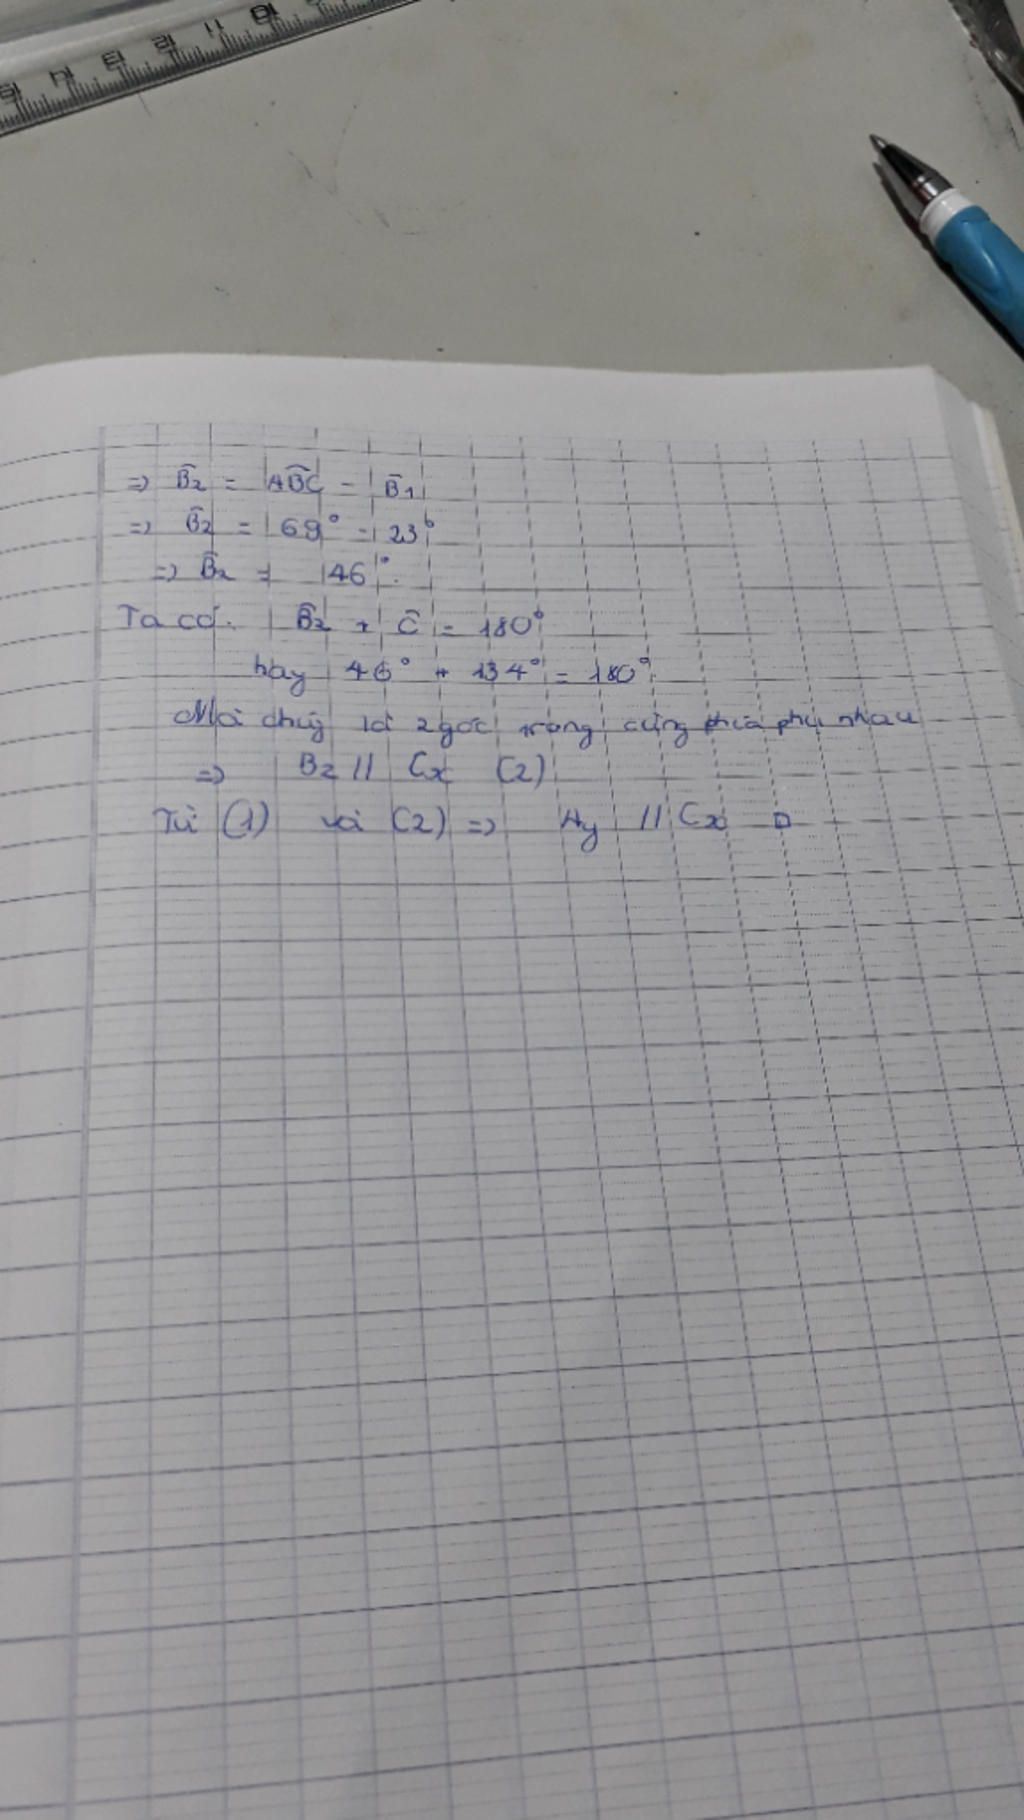 => B̂₂ = AB̂C - B̂₁
=> B̂₂ = 69° - 23°
=> B̂₂ = 46°.
Ta có. B̂₂ + Ĉ = 180°
hay 46° + 134° = 180°
Mà chúng là 2 góc trong cùng phía phụ nhau
=> Bz // Cx (2)
Từ (1) và (2) => Ay // Cx □